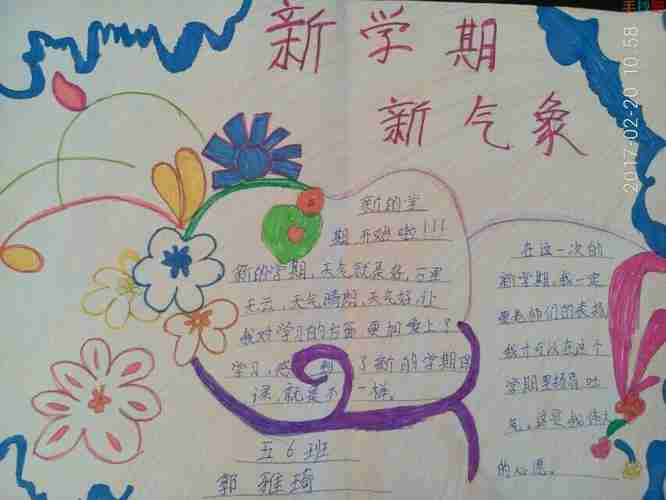 新学期
新气象
新的学
期开始啦!!!
新的学期,天气就是好,万里
无云,天气晴朗,天气好,让
我对学习的方面更加爱上了
学习,感 到了新的学期
课,就是不一样。
五6班
郭雅琦
在这一次的
新学期,我一定
要老师们的表扬
我才可以在这个
学期里扬眉吐
气。这是我伟大
的心愿。
2017-02-20 10:58